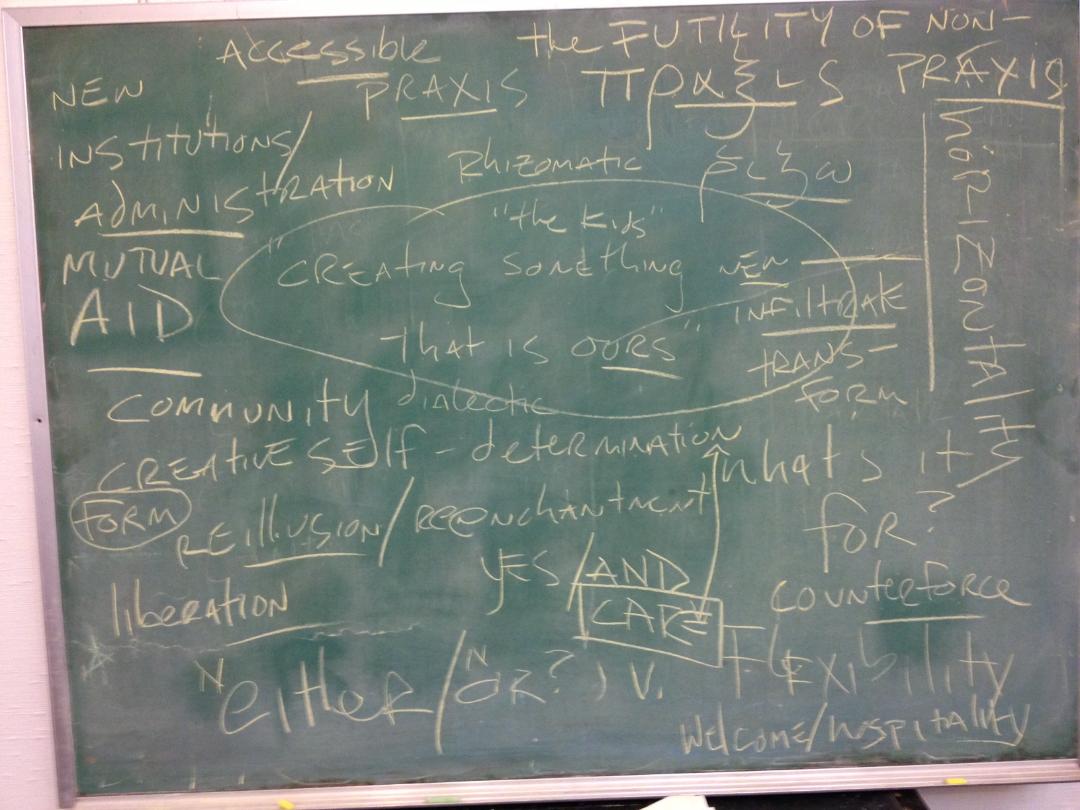 Accessible
PRAXIS
the FUTILITY OF NON-
PRAXIS
NEW
INSTITUTIONS/
AdMINISTRATION
MUTUAL
AID
Rhizomatic
"the kids"
"CREAting SOMEthing NEW
that is OURS"
INFIltRAtE
tRANS-
FORM
HORIZONtAlIty
COMMUNITY dialectic
CREATIVE SElf-determination
FORM
REIllUSION/REENchantment
liberation
YES/AND
CARE
what's it
FOR?
COUNtERforce
N either/N OR? ) V.
flExibility
Welcome/hospitality